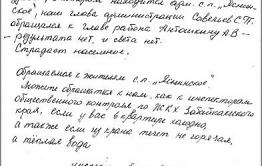 находится адм. с.п. „Яснин-
ское", наш глава администрации Савельев С.П.
обращался к главе района Антошкину А.В —
— результата нет, и света нет.
Страдает население.
Обращаемся к жителям с.п. „Яснинское".
Можете обращаться к нам, как к инспекторам
общественного контроля по ЖКХ Забайкальского
края, если у вас в квартире холодно,
а также если из крана течет не горячая,
а тёплая вода